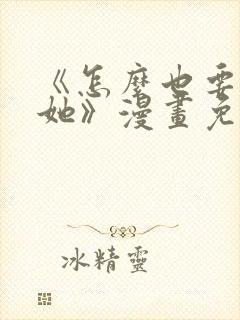 《怎麼也要
她》漫畫免
冰精靈